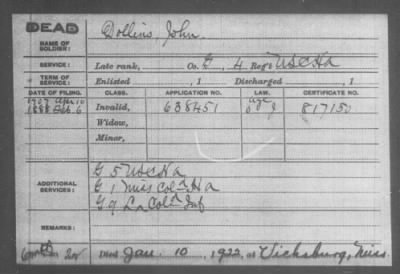 DEAD
NAME OF SOLDIER: Dollins, John.
SERVICE: Late rank, Co. G, 4 Reg't USCHa
TERM OF SERVICE: Enlisted , 1 Discharged , 1
DATE OF FILING. CLASS. APPLICATION NO. LAW. CERTIFICATE NO.
1907 Apr 10 age
1888 Feb. 6 Invalid, 638451 817150
Widow,
Minor,
ADDITIONAL SERVICES: G 5 USCHa
G 1 Miss Cold Ha
G 9 La Cold Inf
REMARKS:
Died Jan. 10, 1922, at Vicksburg, Miss.